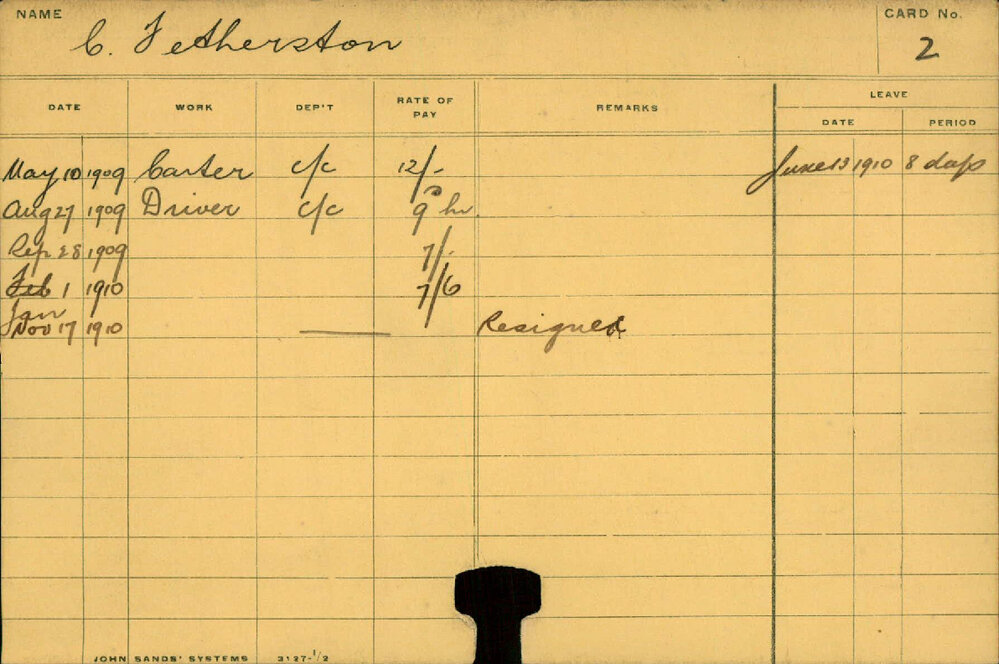 NAME CARD No.
C. Fetherston 2
DATE WORK DEP'T RATE OF PAY REMARKS LEAVE
DATE PERIOD
May 10 1909 Carter c/c 12/- June 13 1910 8 days
Aug 27 1909 Driver c/c 9 hr.
Sep 28 1909 7/-
Feb 1 1910 7/6
Jan
Nov 17 1910 Resigned
JOHN SANDS' SYSTEMS 3127-1/2